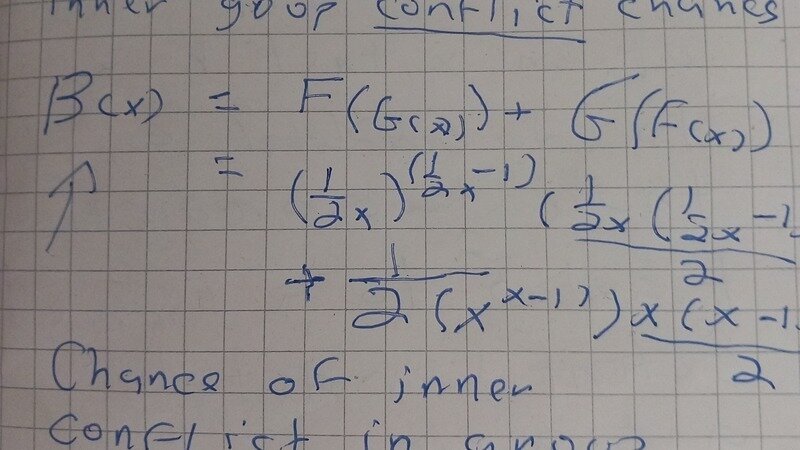 inner goop conflict chances
B(x) = F(G(x)) + G(F(x))
= (1/2 x)^(1/2 x - 1) (1/2 x (1/2 x - 1 / 2
+ 1/2 (x^(x - 1)) x (x - 1 / 2
Chance of inner
conflict in group